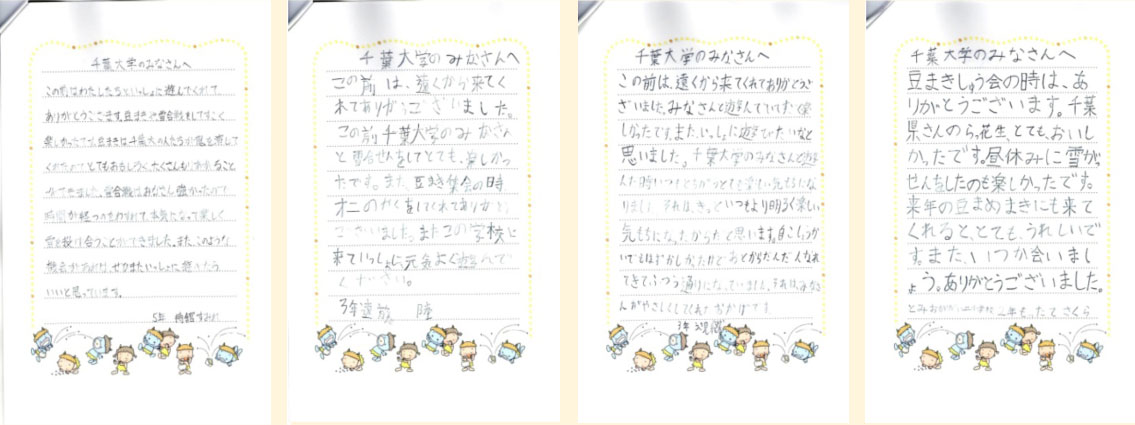 千葉大学のみなさんへ
この前はわたしたちといっしょに遊んでくれて
ありがとうございます。豆まきや雪合戦をしてすごく
楽しかったです。豆まきは千葉大の人たちが鬼を演じて
くれたので とてもおもしろく、たくさん
できました。雪合戦は
時間が経つのをわすれて、本気になって楽しく
雪を投げ合うことができました。また、このような
機会があれば、ぜひまたいっしょに遊べたら
いいと思っています。
5年
千葉大学のみなさんへ
この前は、遠くから来てく
れてありがとうございました。
この前千葉大学のみなさん
と雪合せんをしてとても、楽しかっ
たです。また、豆まき集会の時、
オニのやくをしてくれてありがとう
ございました。またこの学校に
来ていっしょに元気よく遊んで
ください。
3年 陸
千葉大学のみなさんへ
この前は、遠くから来てくれてありがとうご
ざいました。みなさんと遊んでいて、すごく楽
しかったです。また、いっしょに遊びたいなと
思いました。千葉大学のみなさんと遊
んだ時いつもとちがってとても楽しい気もちにな
りました。それは、きっといつもより明るく楽しい
気もちになったからだと思います。自こしょうか
いでははずかしかったけどあとからだんだんなれ
てきてふつう通りになっていました。それはみなさ
んがやさしくしてくれたおかげです。
3年
千葉大学のみなさんへ
豆まきしゅう会の時は、あ
りがとうございます。千葉
県さんのらっ花生、とても、おいし
かったです。昼休みに雪がっ
せんをしたのも楽しかったです。
来年の豆まめまきにも来て
くれると、とても、うれしいで
す。また、いつか会いまし
ょう。ありがとうございました。
二年 さくら